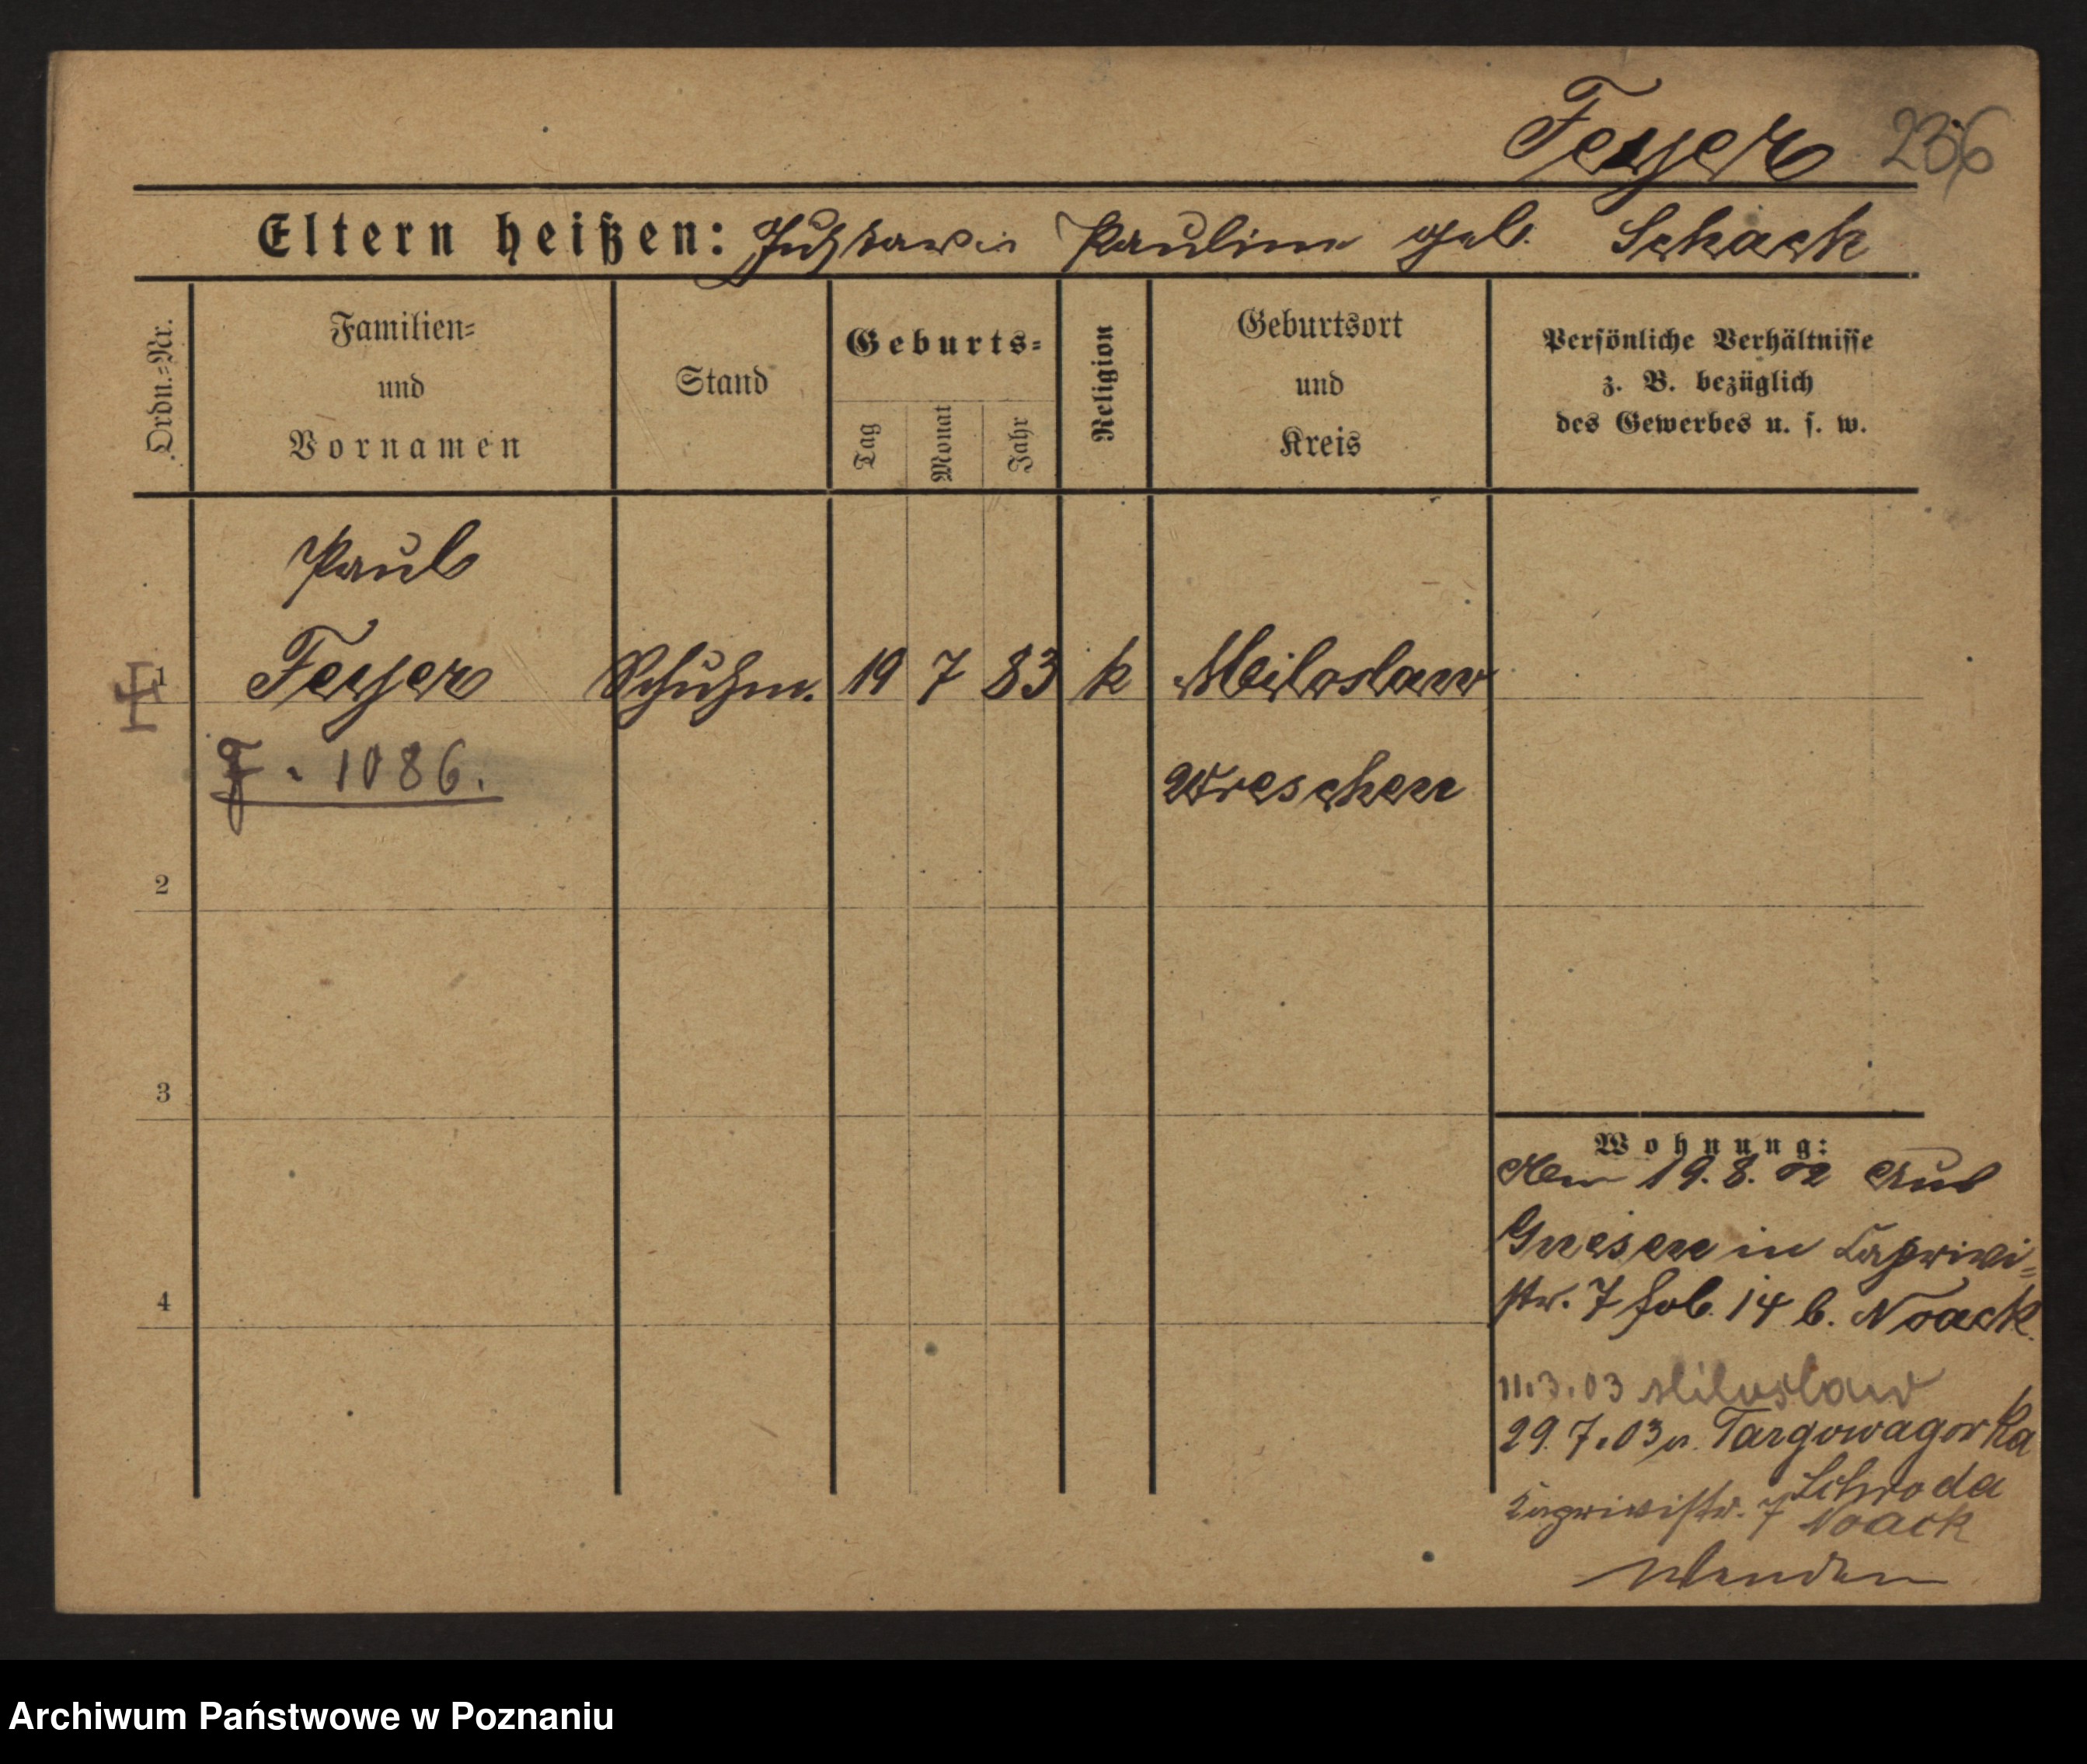 Feyer 236
Eltern heißen: Gustav u. Pauline geb. Schack
Ordn.=Nr.
Familien=
und
Vornamen
Stand
Geburts=
Tag
Monat
Jahr
Religion
Geburtsort
und
Kreis
Persönliche Verhältnisse
z. B. bezüglich
des Gewerbes u. s. w.
Paul
1 Feyer Schuhm. 19 7 83 k Miloslaw
F. 1086. Wreschen
2
3
4
Wohnung:
19.8.02 aus
Gnesen in Caprivi=
str. 7 14 b. Noack
11.3.03 Miloslaw
29.7.03 v. Targowagorka
Schroda
Caprivistr. 7 Noack
Wenden
Archiwum Państwowe w Poznaniu